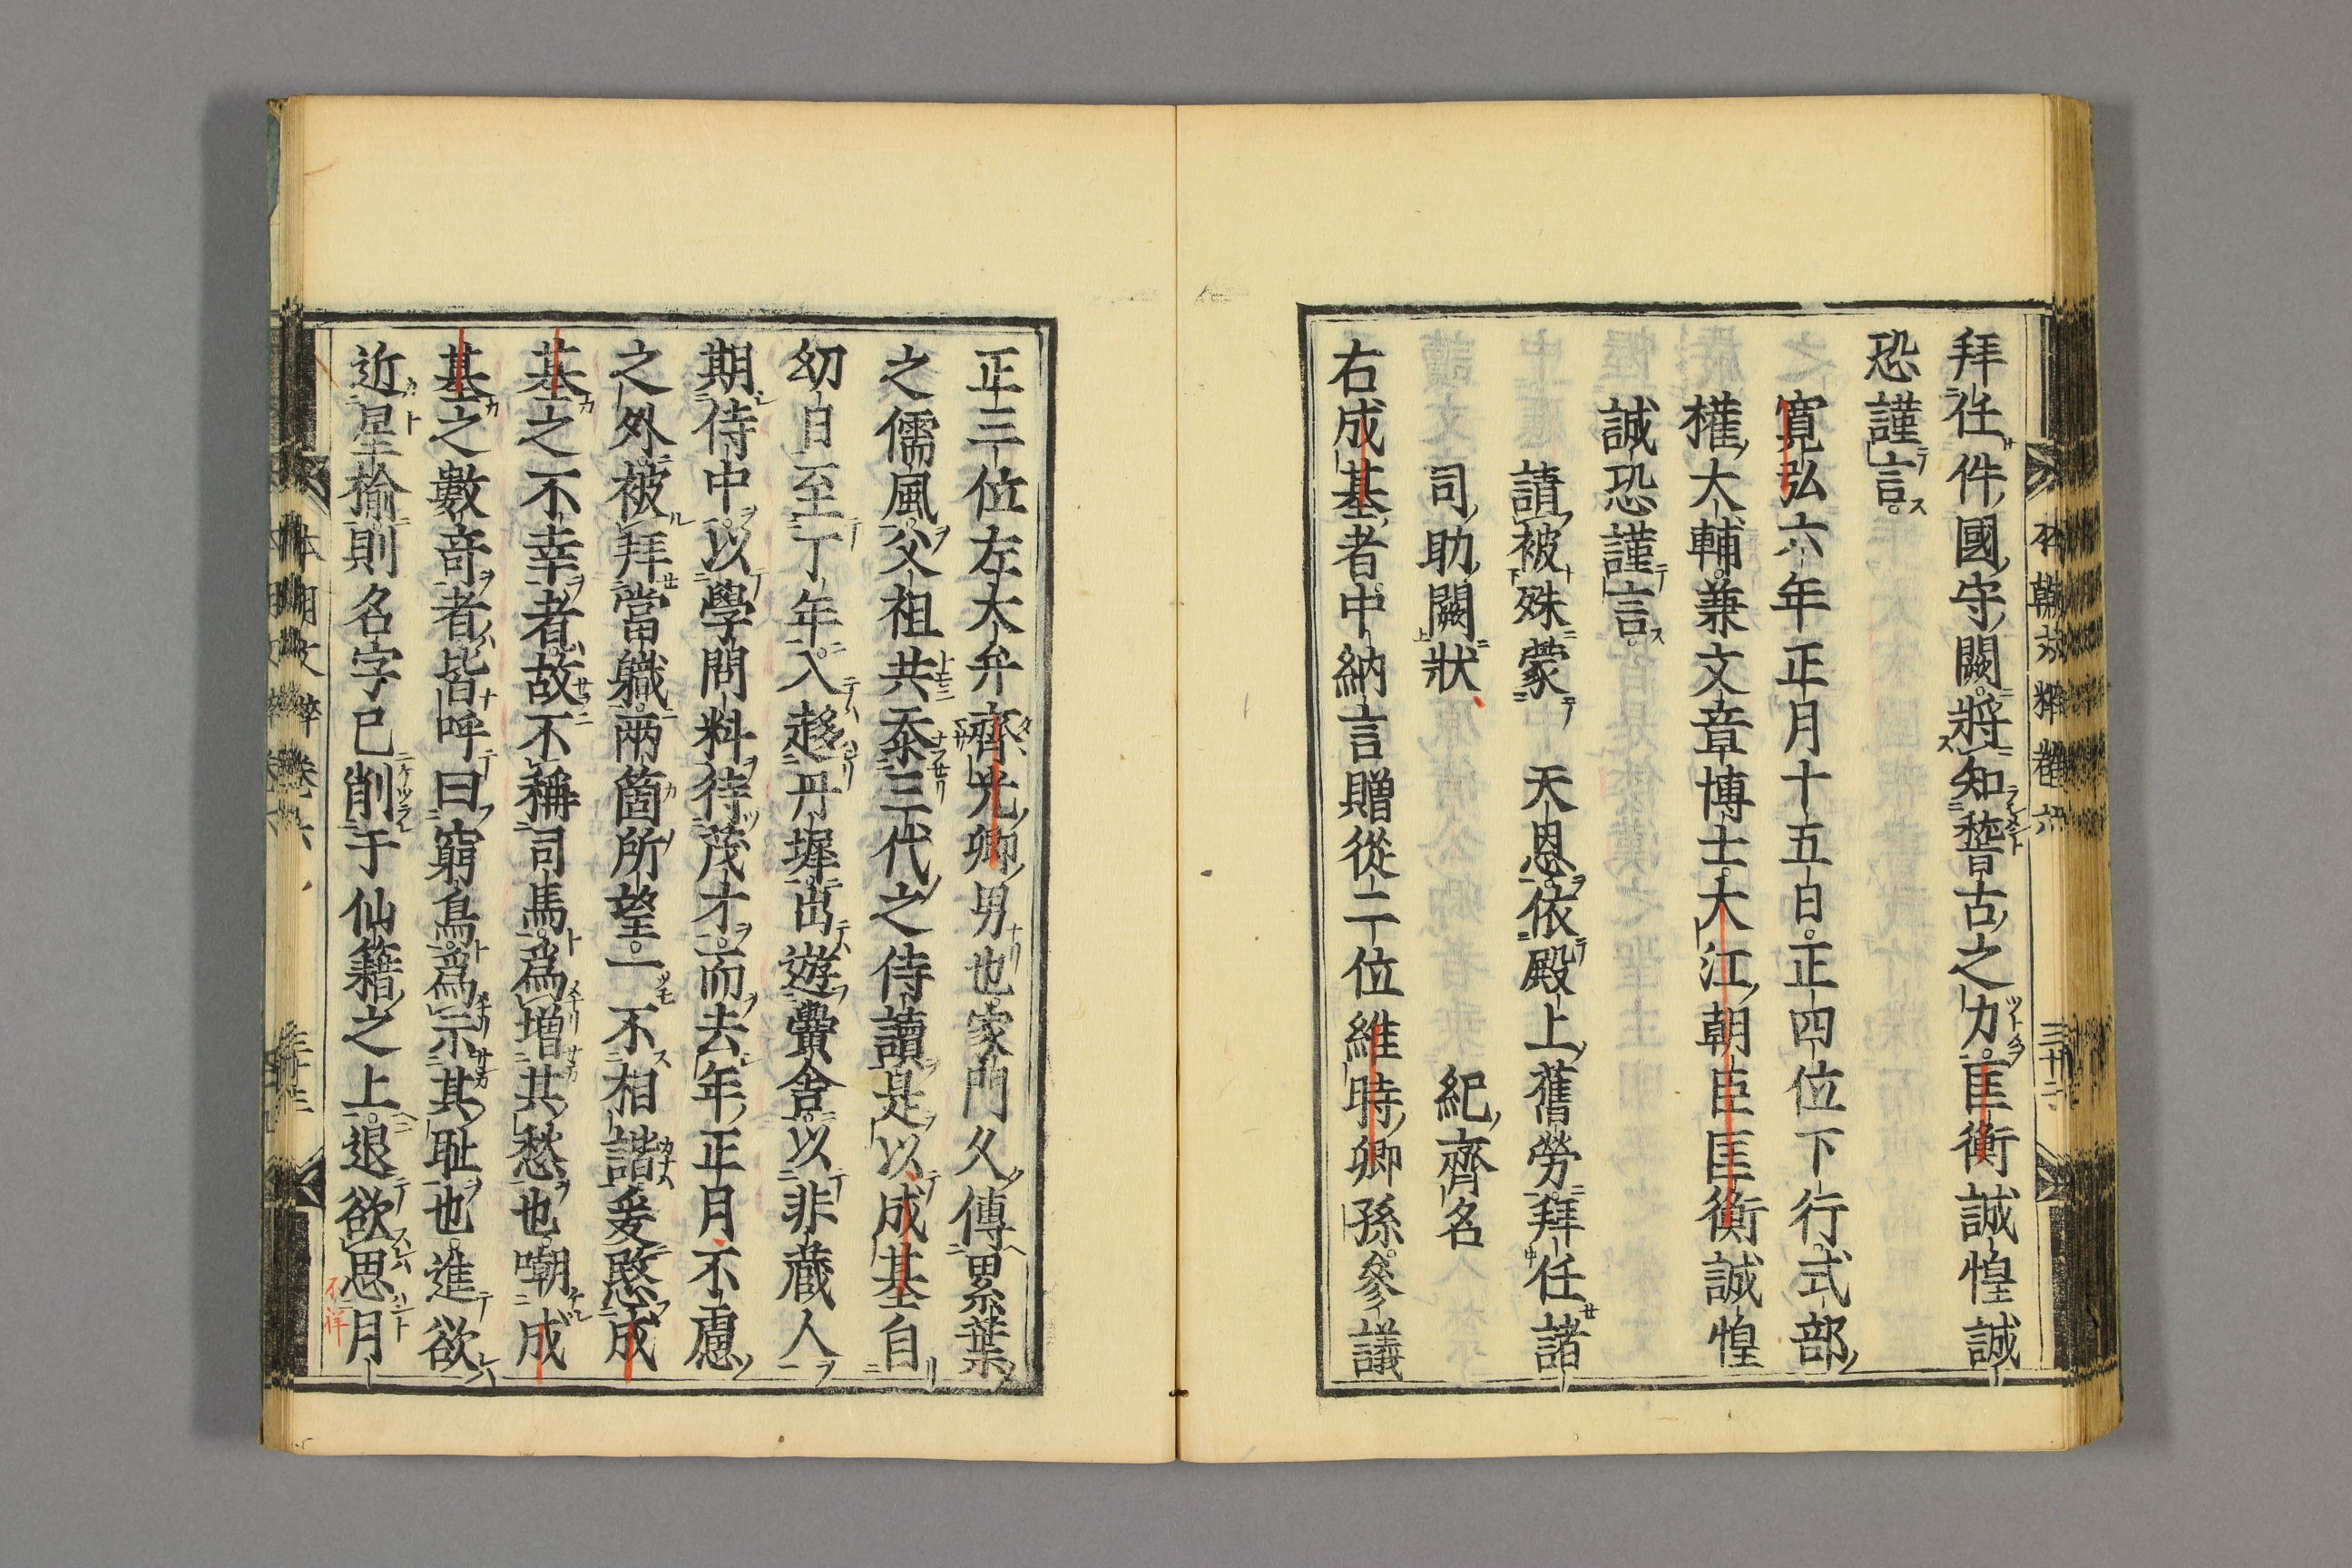 拜任件國守闕將知稽古之力匡衡誠惶誠
恐謹言
寛弘六年正月十五日正四位下行式部
權大輔兼文章博士大江朝臣匡衡誠惶
誠恐謹言
請被殊蒙 天恩依殿上舊勞拜任諸
司助闕狀
紀齊名
右成基者中納言贈從二位維時卿孫參議
正三位左大弁齊光卿男也家門久傳累葉
之儒風父祖共忝三代之侍讀是以成基自
幼日至丁年入趍丹墀出遊黌舎以非藏人
期侍中以學問料待茂才而去年正月不慮
之外被拜當職兩箇所望一不相諧爰愍成
基之不幸者故不稱司馬爲増其愁也嘲成
基之數奇者皆呼曰窮鳥爲示其耻也進欲
近星揄則名字已削于仙籍之上退欲思月
不祥
三十二